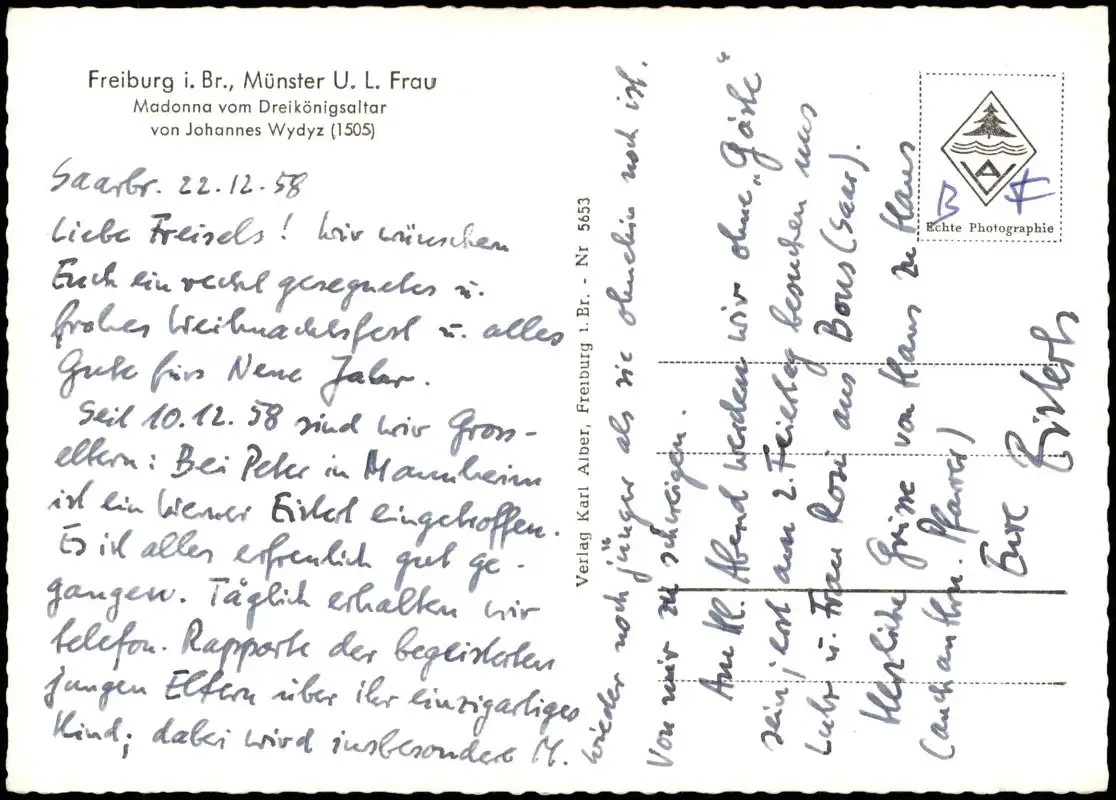 Freiburg i. Br., Münster U. L. Frau
Madonna vom Dreikönigsaltar
von Johannes Wydyz (1505)
Saarbr. 22.12.58
Liebe Freisels! Wir wünschen
Euch ein recht gesegnetes u.
frohes Weihnachtsfest u. alles
Gute fürs Neue Jahr.
Seit 10.12.58 sind wir Gross-
eltern: Bei Peter in Mannheim
ist ein Werner Eistert eingetroffen.
Es ist alles erfreulich gut ge-
gangen. Täglich erhalten wir
telefon. Rapporte der begeisterten
jungen Eltern über ihr einzigartiges
Kind; dabei wird insbesondere M.
wieder noch jünger als sie ohnehin noch ist.
Von mir zu schweigen.
Am Hl. Abend werden wir ohne „Gäste"
sein; erst am 2. Feiertag besuchen uns
u. Frau Rosi aus Bous (Saar).
Herzliche Grüsse von Haus zu Haus
(auch an Hrn. Pfarrer)
Eure Eisterts
Verlag Karl Alber, Freiburg i. Br. - Nr 5653
Echte Photographie